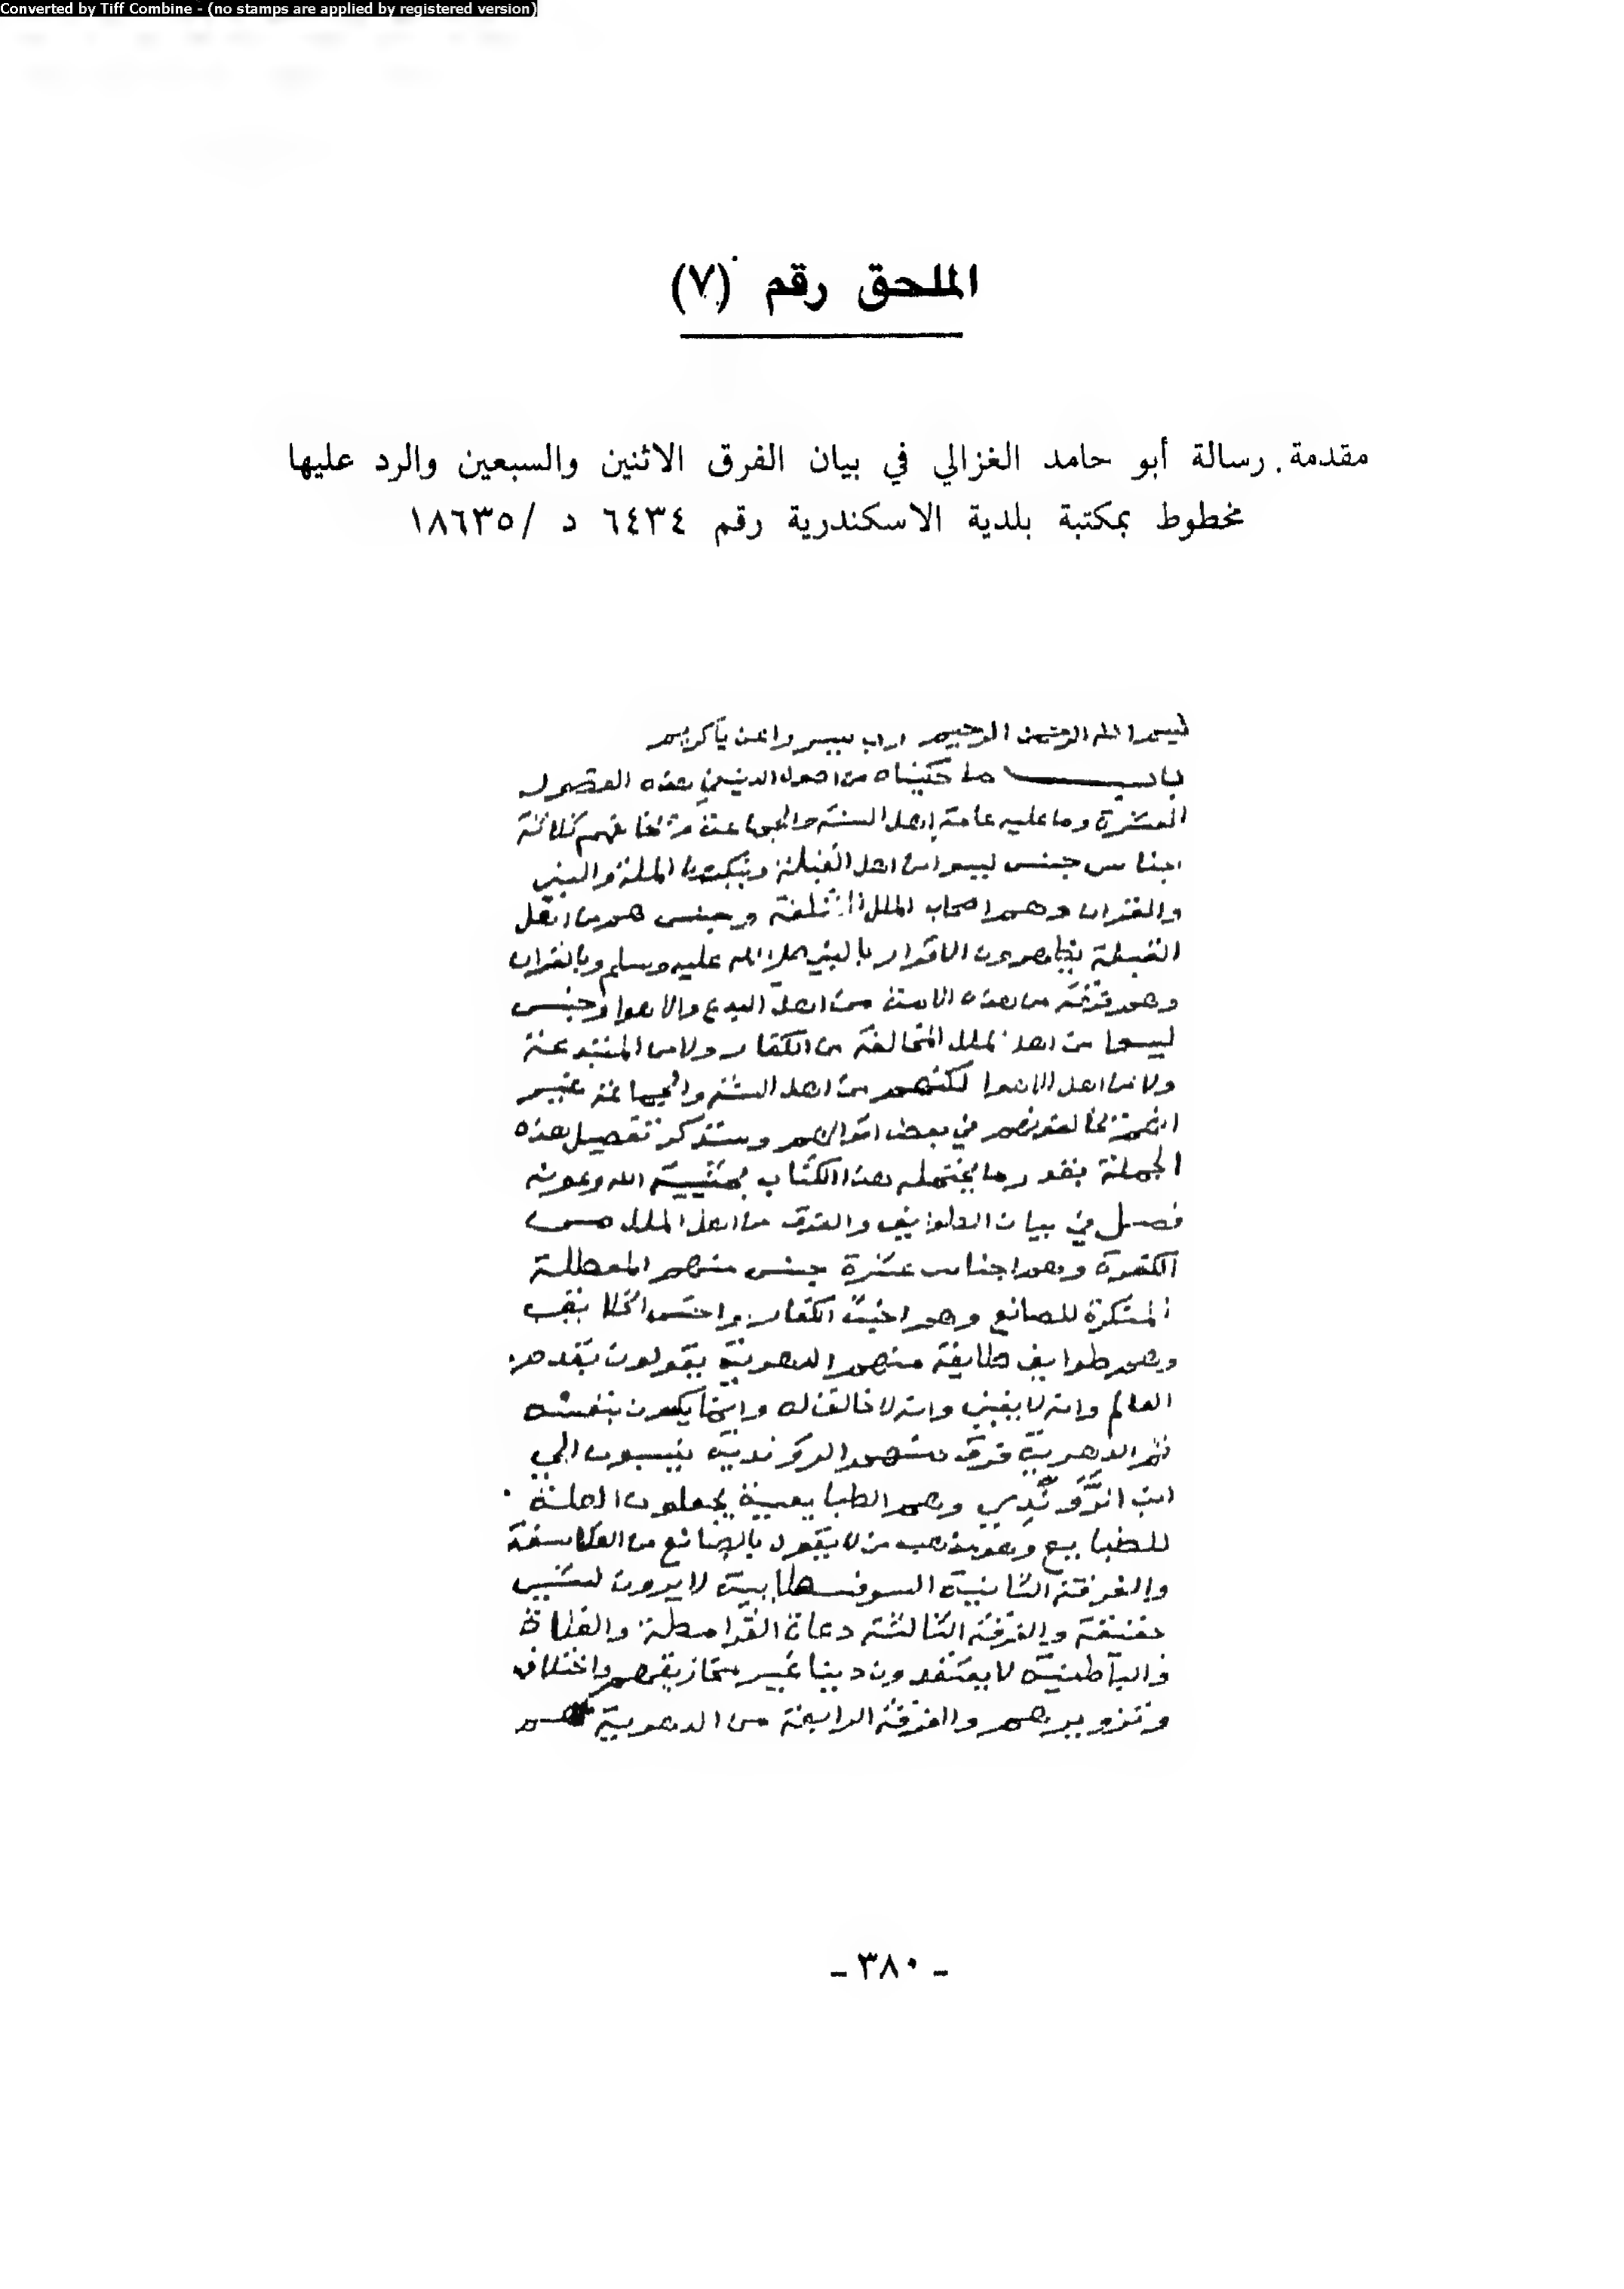 Converted by Tiff Combine - (no stamps are applied by registered version)
الملحق رقم (٧)
مقدمة. رسالة أبو حامد الغزالي في بيان الفرق الاثنين والسبعين والرد عليها
مخطوط بمكتبة بلدية الاسكندرية رقم ٦٤٣٤ د /١٨٦٣٥
بسم الله الرحمن الرحيم رب يسر واعن يا كريم
باب ما حكيناه من اصول الدين هذه الفصول
العشرة وما عليه عامة اهل السنة والجماعة مخالفهم ثلاثة
اجناس جنس ليسوا من اهل القبلة الملة والنبي
والقران وهم اصحاب الملل وجنس هم من اهل
القبلة يظهرون الاقرار بالنبي صلى الله عليه وسلم وبالقران
وهم فرقة من هذه الامة من اهل البدع والاهوا وجنس
ليسوا من اهل الملل المخالفة من الكفار ولا من المبتدعة
ولا من اهل الاهوا لكنهم من اهل السنة والجماعة غير
في بعض اقوالهم وسنذكر تفصيل هذه
الجملة بقدر ما يحتمله هذا الكتاب بمشيية الله وعونه
فصل في بيان الطوايف والفرق من اهل الملل من
الكفرة وهم اجناس عشرة جنس منهم المعطلة
المنكرة للصانع وهم اخبث الكفار واخس الخلايق
وهم طوايف طايفة منهم الدهرية يقولون بقدم
العالم وانه لا يفنى وانه لا خالق له وانما يكون بنفسه
ثم الدهرية فرق منهم الروندية ينسبون الي
ابن الروندي وهم الطبايعية يجعلون العلة
للطبايع وهو مذهب من لا يقول بالصانع من الفلاسفة
والفرقة الثانية السوفسطايية لا يرون لشيي
حقيقة والفرقة الثالثة دعاة القرامطة والغلاة
والباطنية لا يعتقدون دينا غير مخازيقهم واختلاف
وتزويرهم والفرقة الرابعة من الدهرية هم
- ٣٨٠ -